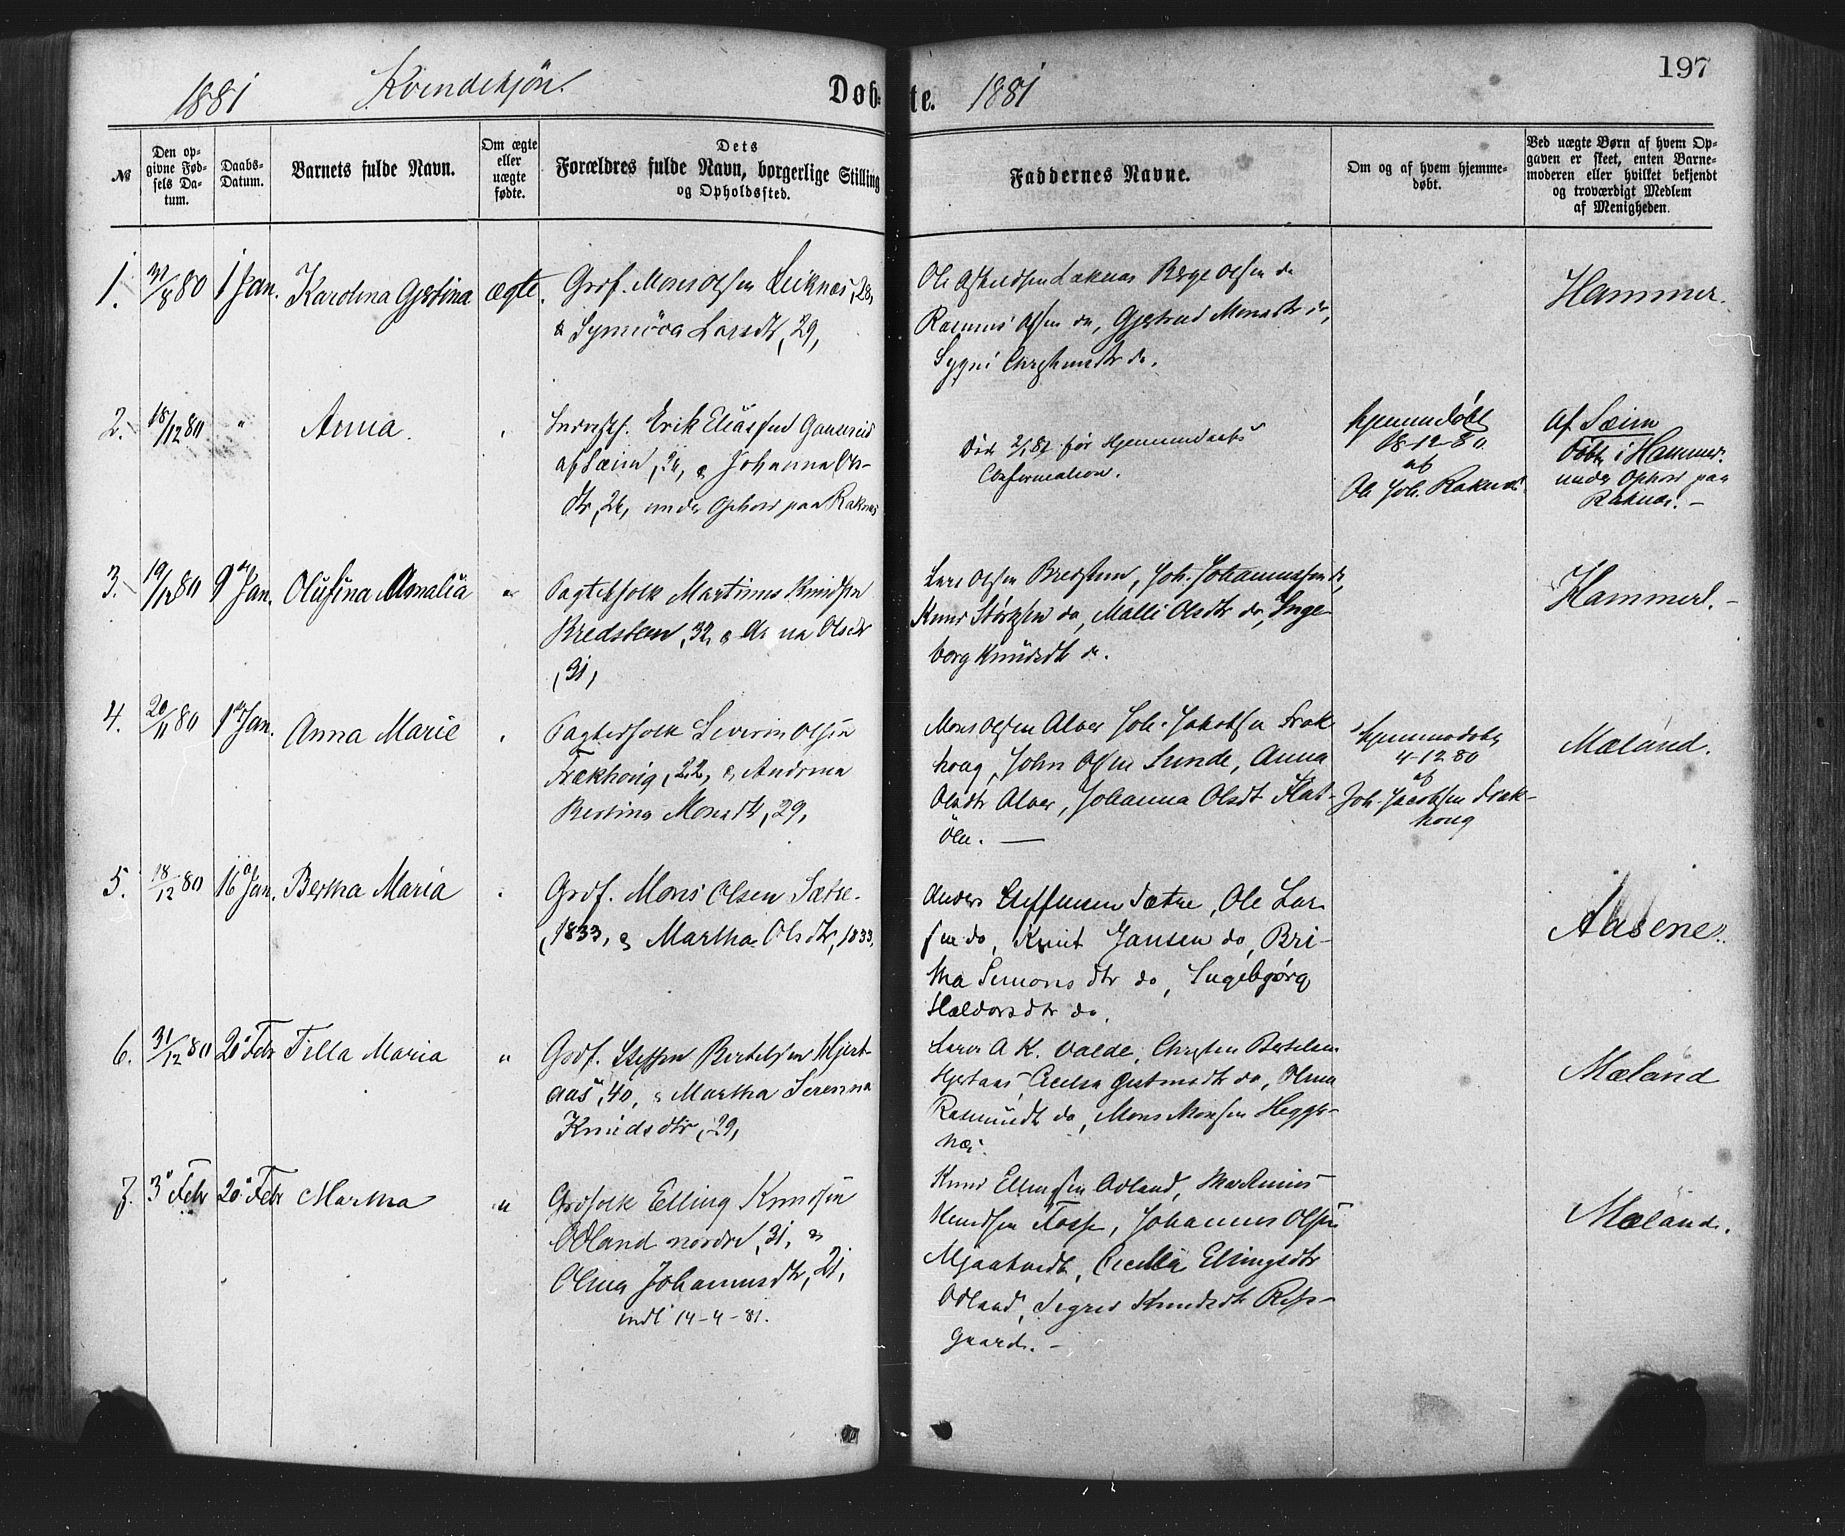 197
1881 Kvindekjön. Døb-
te. 1881
№
Den op-
givne Fød-
sels Da-
tum.
Daabs-
Datum.
Barnets fulde Navn.
Om ægte
eller
uægte
fødte.
Dets
Forældres fulde Navn, borgerlige Stilling
og Opholdssted.
Faddernes Navne.
Om og af hvem hjemme-
døbt.
Ved uægte Børn af hvem Op-
gaven er skeet, enten Barne-
moderen eller hvilket bekjendt
og troværdigt Medlem
af Menigheden.
1. 31/8 80 1 Jan. Karolina Gjertina ægte.
Grdf. Mons Olsen Leiknæs, 28,
& Synnöva Larsdtr, 29,
Rasmus Olsen do, Gjertrud Monsdtr do,
Hammer.
2. 18/12 80 " Anna
Erik Eliassen
af Sæim, & Johanna Ols-
dtr, 26, under Ophold paa Raknæs
Död 2/1 81 før Hjemmedaabs
Confirmation.
hjemmedöbt
18-12-80
af
Ol. Joh. Raknæs
af Sæim
døbt i Hammer
under Ophold paa
Raknæs. -
3. 19/12 80 9 Jan. Olufina Amalia "
Pagterfolk Martinus Knudsen
Bredsten, 32, & Anna Olsdtr
, 31,
Lars Olsen Bredsten, Joh. Johannessen do,
Knud Störksen do, Malli Olsdtr do, Inge-
borg Knudsdtr do.
Hammer. -
4. 20/11 80 1 Jan. Anna Marie
Pagterfolk Severin Olsen
Frækhoug, 22, & Andrina
Bertina Monsdtr, 29,
Mons Olsen Alver, Joh. Jakobsen Fræk-
houg, John Olsen Sunde, Anna
Olsdtr Alver, Johanna Olsdtr Flat-
öen. —
hjemmedöbt
4-12 80
af
Joh. Jacobsen Fræk-
houg
Mæland.
5. 18/12 80 16 Jan. Bertha Maria
Grdf. Mons Olsen Sætre
, 1833, & Martha Olsdtr, 1833,
Anders Steffensen Sætre, Ole Lar-
sen do, Knut Jansen do, Bri-
tha Simonsdtr do, Ingebjørg
Haldorsdtr do.
Aasene.
6. 31/12 80 20 Febr Tella Maria "
Grdf. Steffen Bertelsen Hjert-
aas, 40, & Martha Serenna
Knudsdtr, 29,
Lærer A K. Valde, Christen Bertelsen
Hjertaas, Cecilia do, Olina
Rasmusdtr do, Mons Monsen Hegger-
næs.
Mæland
7. 3 Febr 20 Febr Martha "
Grdfolk Elling Knudsen
Odland nordre, 31, &
Olina Johannesdtr, 21,
indl 14-4-81.
Knud Ellingsen Odland, Martinus
Knudsen Fosse, Johannes Olsen
Mjaatvedt, Cecilia Ellingsdtr
Odland, Sigrid Knudsdtr Ryss-
gaard. -
Mæland.